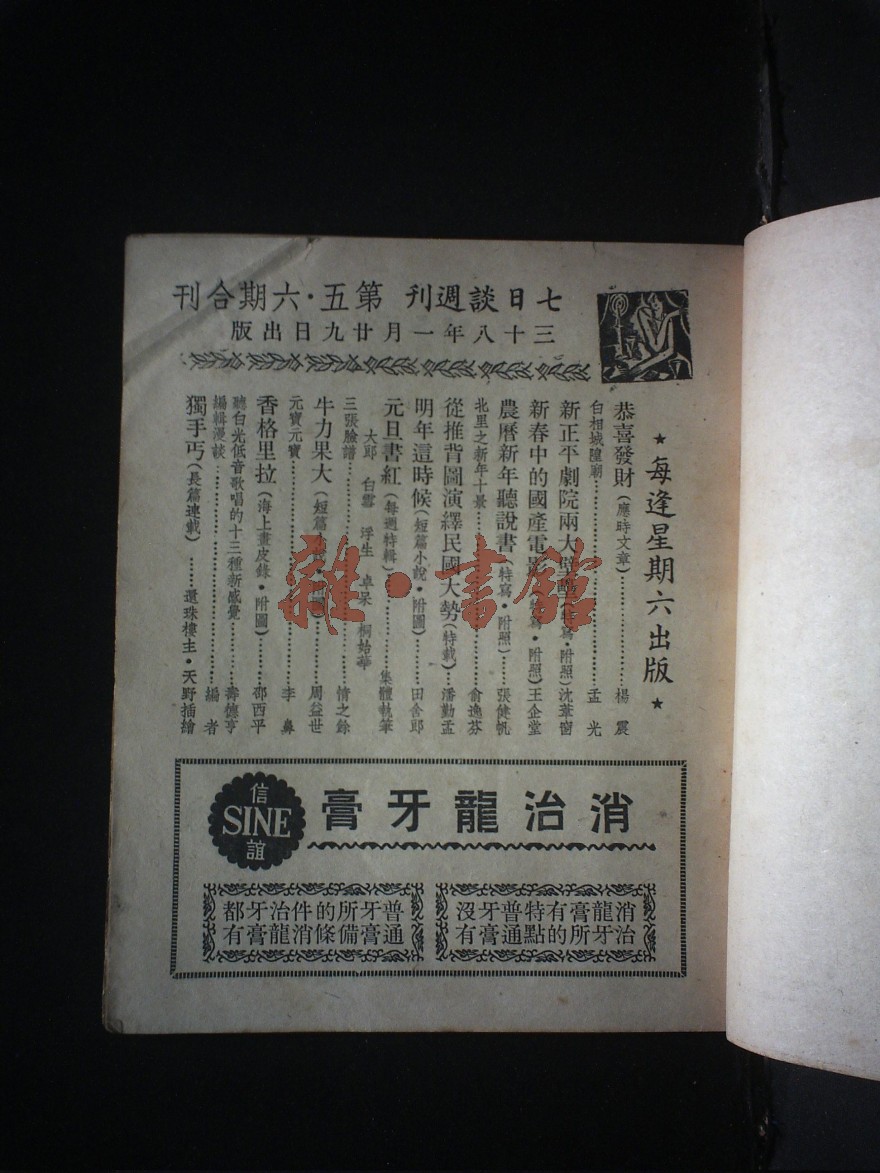 七日談週刊 第五·六期合刊
三十八年一月廿九日出版
★ 每逢星期六出版 ★
恭喜發財(應時文章)……楊震
白相城隍廟……孟光
新正平劇院兩大壁壘(特寫·附照)沈葦窗
新春中的國產電影(特寫·附照)王企堂
農曆新年聽說書(特寫·附照)…張健帆
北里之新年十景……俞逸芬
從推背圖演繹民國大勢(特載)…潘勤孟
明年這時候(短篇小說·附圖)…田舍郎
元旦書紅(每週特輯)……集體執筆
大郎 白雪 浮生 卓呆 桐始華
三張臉譜……情之餘
牛力果大(短篇小說·附圖)…周益世
元寶元寶……李鼻
香格里拉(海上畫皮錄·附圖)…邵西平
聽白光低音歌唱的十三種新感覺……壽德亨
編輯漫談……編者
獨手丐(長篇連載)……還珠樓主·天野插繪
消治龍牙膏
信
SINE
誼
消治龍牙膏所有的特點普通牙膏沒有
普通牙膏所備的條件消治龍牙膏都有
雜·書館